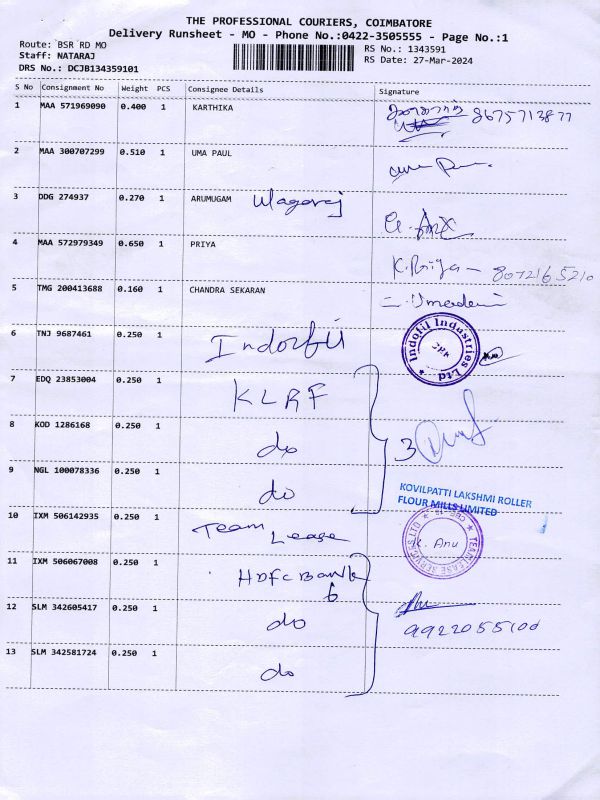 THE PROFESSIONAL COURIERS, COIMBATORE
Delivery Runsheet - MO - Phone No.:0422-3505555 - Page No.:1
Route: BSR RD MO
Staff: NATARAJ
DRS No.: DCJB134359101
RS No.: 1343591
RS Date: 27-Mar-2024
S No Consignment No Weight PCS Consignee Details Signature
1 MAA 571969090 0.400 1 KARTHIKA 8675713877
2 MAA 300707299 0.510 1 UMA PAUL
3 DDG 274937 0.270 1 ARUMUGAM
4 MAA 572979349 0.650 1 PRIYA K. Priya - 8072165210
5 TMG 200413688 0.160 1 CHANDRA SEKARAN
6 TNJ 9687461 0.250 1 Indofil Indofil Industries Ltd
7 EDQ 23853004 0.250 1 KLRF
8 KOD 1286168 0.250 1 do 3
9 NGL 100078336 0.250 1 do
KOVILPATTI LAKSHMI ROLLER
FLOUR MILLS LIMITED
10 IXM 506142935 0.250 1 Team Lease TEAM LEASE SERVICES LTD
K. Anu
11 IXM 506067008 0.250 1 HDFC Bank
6
12 SLM 342605417 0.250 1 do
9922055100
13 SLM 342581724 0.250 1 do